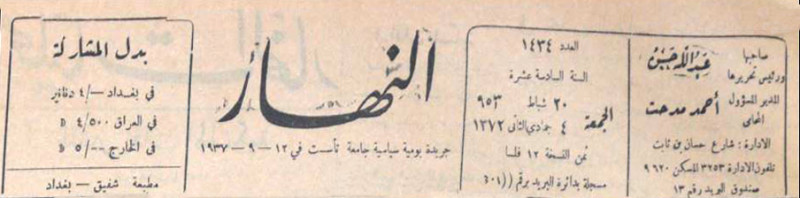 صاحبها
ورئيس تحريرها
عبد الله حسن
المدير المسؤول
المحامي
أحمد مدحت
الادارة : شارع حسان بن ثابت
تلفون الادارة ٣٢٥٣ المسكن ٩٦٢٠
صندوق البريد رقم ١٣
العدد ١٤٣٤
السنة السادسة عشرة
الجمعة
٢٠ شباط ٩٥٣
٤ جمادي الثاني ١٣٧٢
ثمن النسخة ١٢ فلسا
مسجلة بدائرة البريد برقم ((٤٠١
النهار
جريدة يومية سياسية جامعة تأسست في ١٢ – ٩ – ١٩٣٧
بدل المشاركة
في بغداد —/٤ دنانير
في العراق ٤/٥٠٠ D
في الخارج —/٥ D
مطبعة شفيق – بغداد